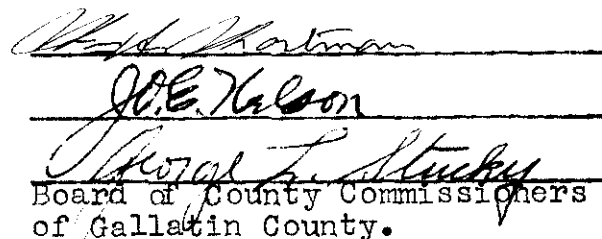 Hartman
J.O.E. Nelson
George L. Stucky
Board of County Commissioners
of Gallatin County.